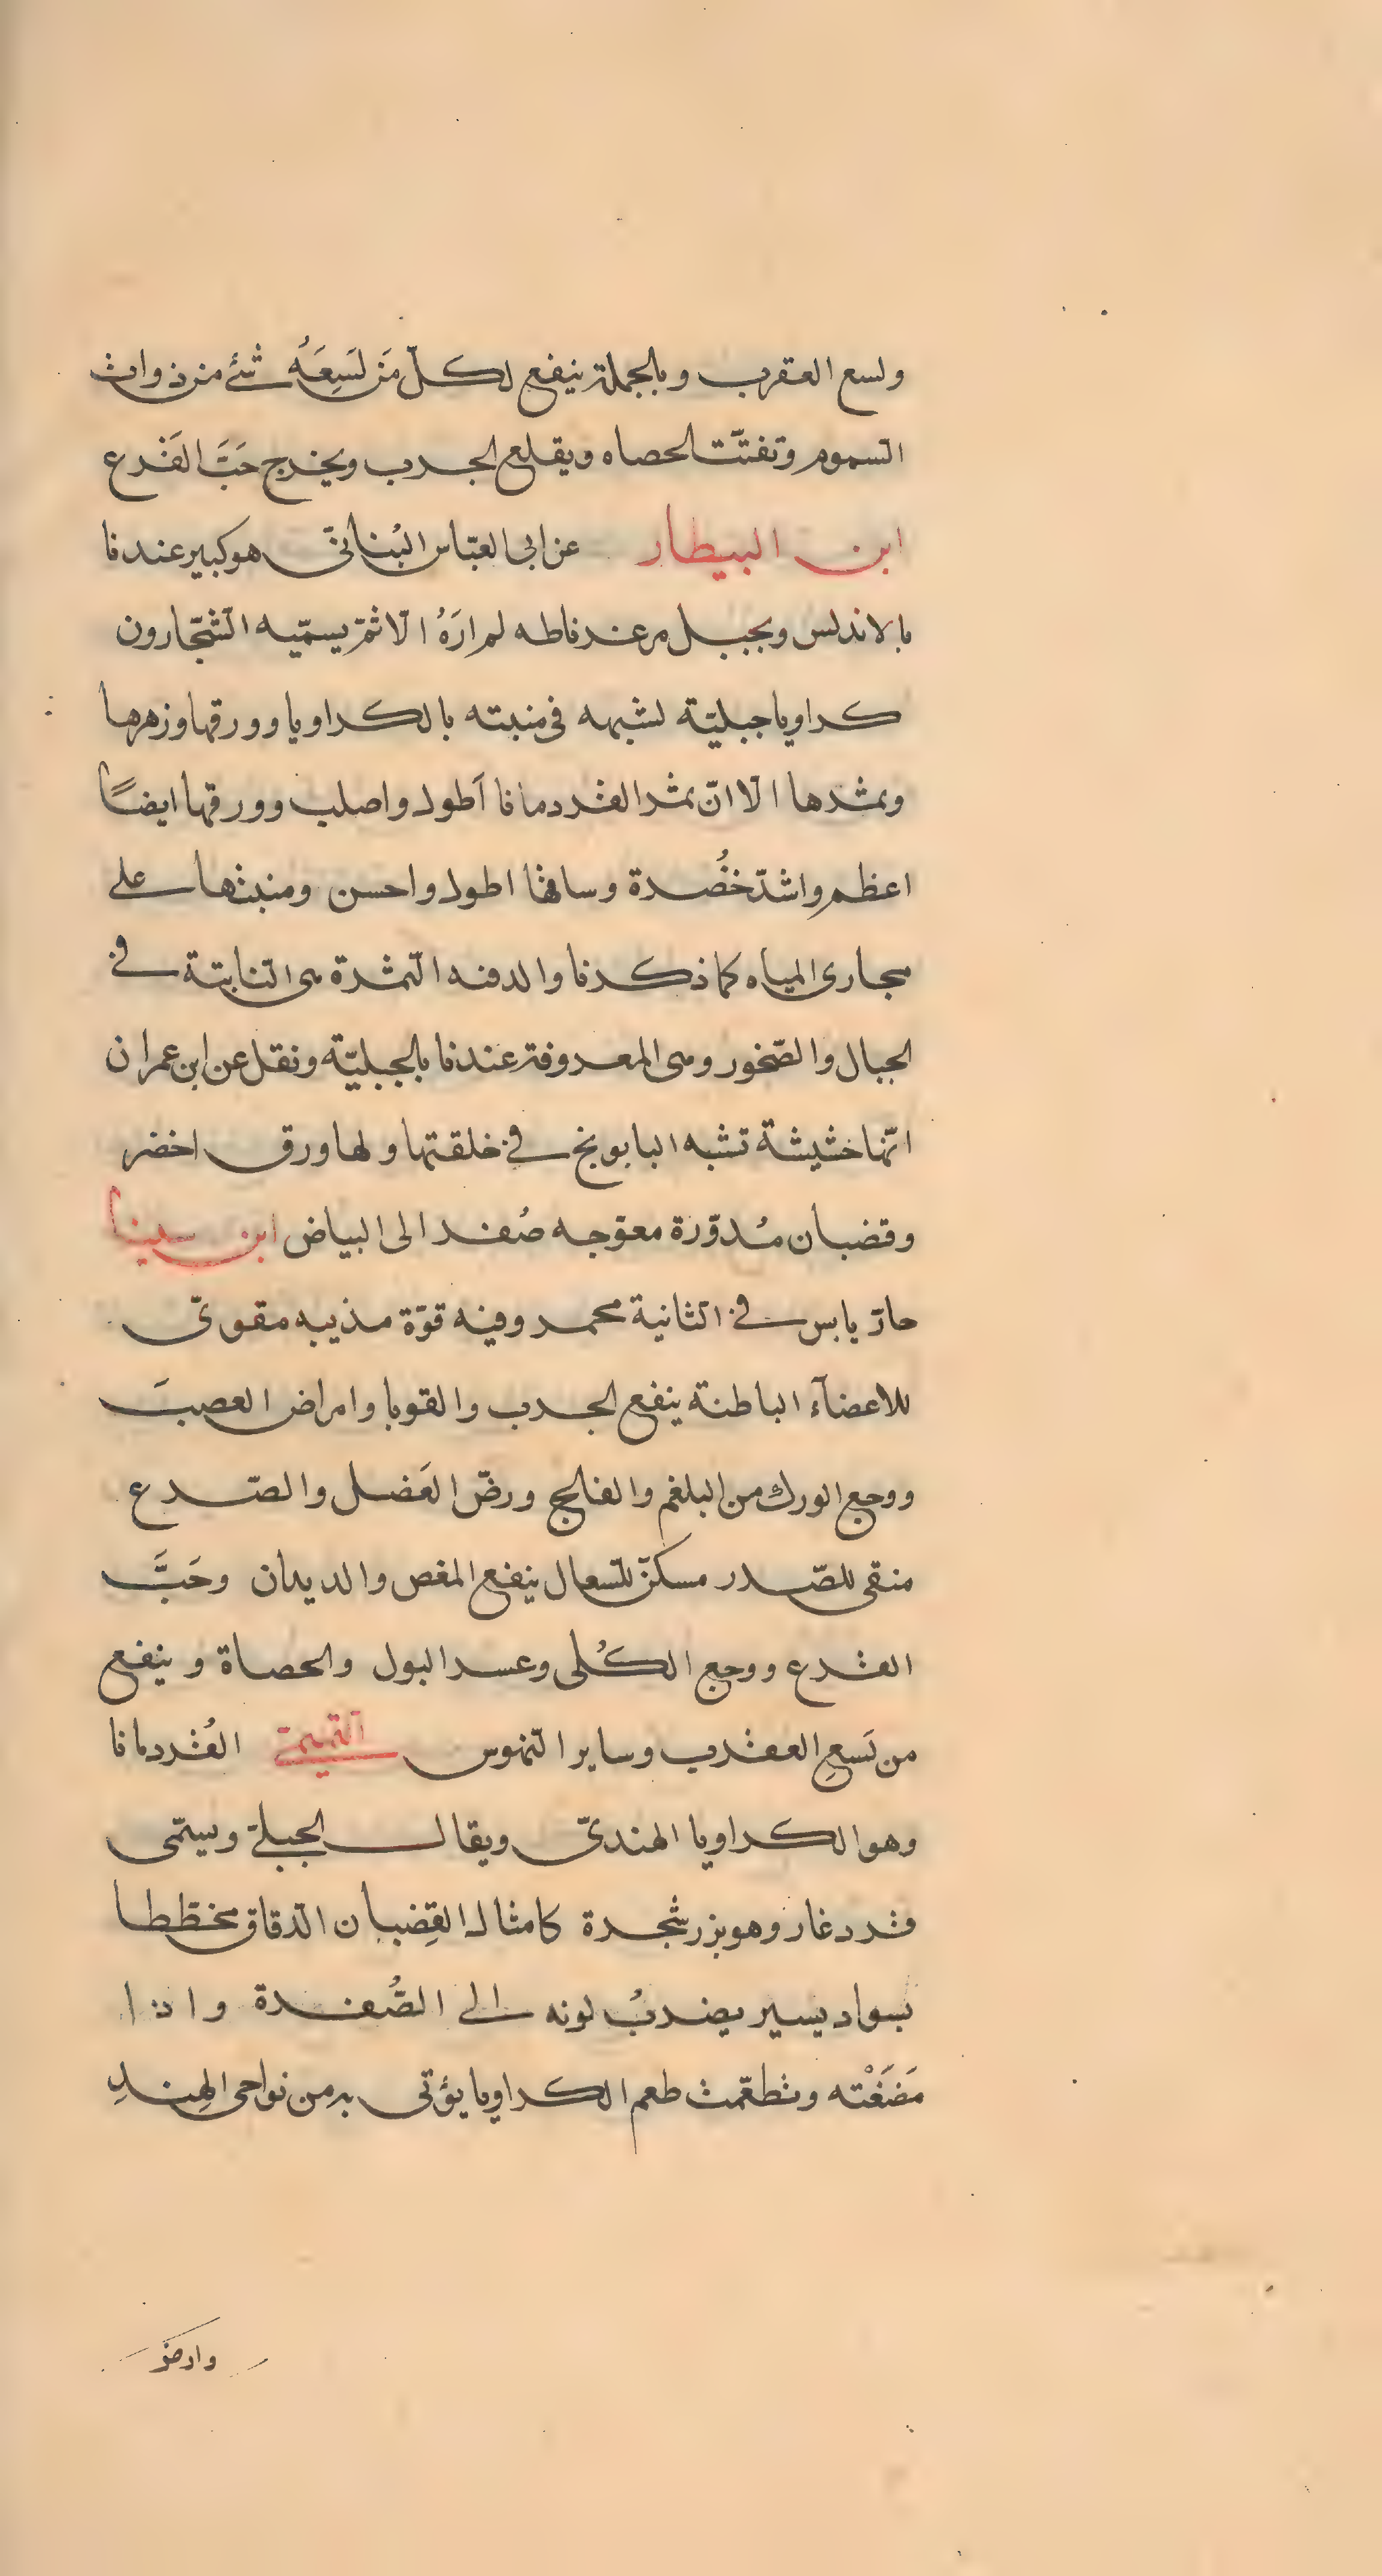 ولسع العقرب وبالجملة ينفع لكلّ مَن لَسِعَهُ شئ من ذوات
السموم وتفتّت الحصاه ويقلع الجرب ويخرج حَبَّ القَرع
ابن البيطار عن ابى العبّاس البُناتىّ هو كبير عندنا
بالاندلس وبجبل مرغرناطه لم ارَهُ الّا ثمّ يسمّيه الشّجّارون
كراويا جبليّة لشبهه فى منبته بالكراويا وورقها وزهرها
وثمرها الّا انّ ثمر القردمانا اَطول واصلب وورقها ايضًا
اعظم واشدّ خُضرة وساقها اطول واحسن ومنبتها على
مجارى المياه كما ذكرنا والدقنه الثمرة هى النّابتة فى
الجبال والصّخور وهى المعروفة عندنا بالجبليّة ونقل عن ابن عمران
انّها خشيشة تشبه البابونج فى خلقتها ولها ورق اخضر
وقضبان مُدوّرة معوّجه صُفر الى البياض ابن سينا
حارّ يابس فى الثّانية محمر وفيه قوّة مذيبه مقوىّ
للاعضآء الباطنة ينفع الجرب والقوبا وامراض العصبَ
ووجع الورك من البلغم والفالج ورضّ العَضل والصّرع
منقى للصّدر مسكنّ للسّعال ينفع المغص والديدان وحَبَّ
القرع ووجع الكُلى وعسر البول والحصاة وينفع
من لَسعِ العقرب وساير النّهوس التميمىّ القُردمانا
وهو الكراويا الهندىّ ويقال الجبلىّ ويسمّى
قردغار وهو بزر شجرة كامثال القِضبان الدّقاق مخطّطا
بسواد يسير يضربُ لونه الى الصُّفرة واذا
مَضَغْته وتطعّمت طعم الكراويا يؤتى به من نواحى الهِندِ
وارض